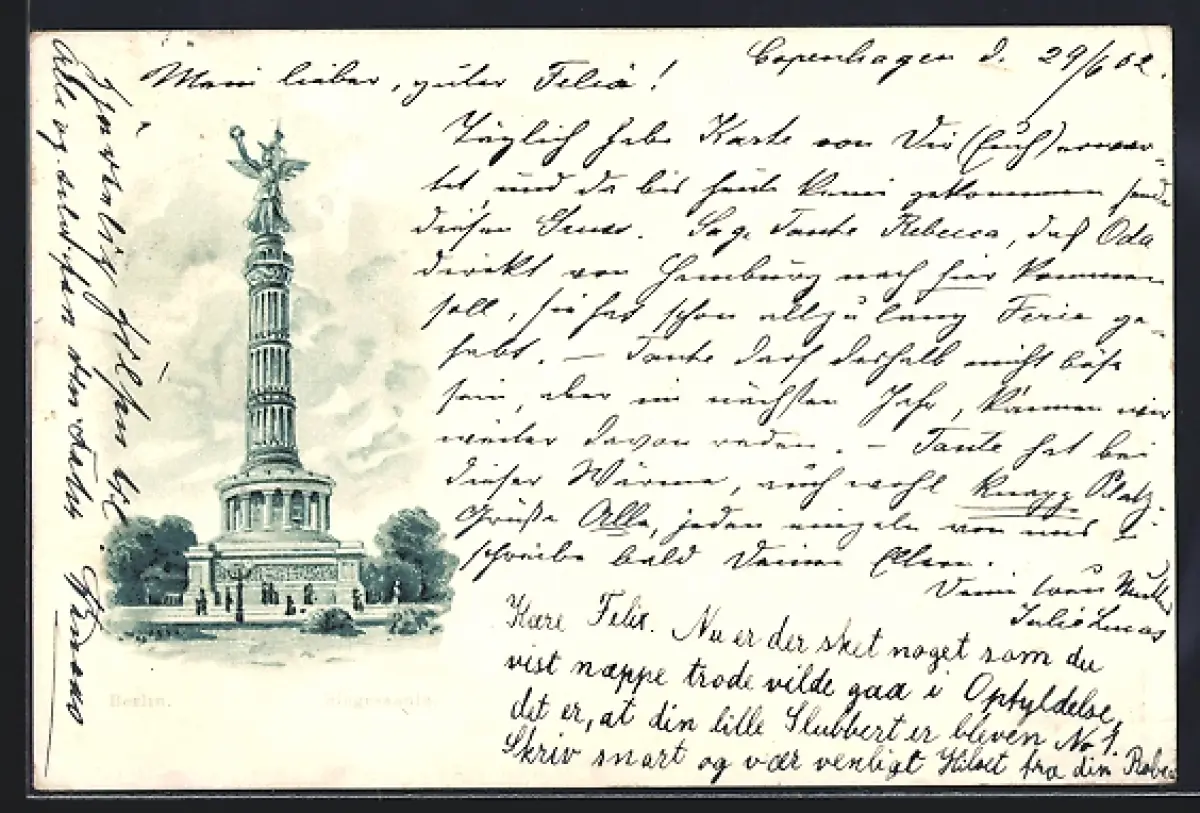 Copenhagen d. 29/6 02.
Mein lieber, guter Felix!
Täglich habe Karte von Dir (Euch) erwar-
tet, und da bis heute keine gekommen sende
diesen Gruss. Sage Tante Rebecca, daß Oda
direkt von Hamburg nach hier kommen
soll, sie hat schon allzu lang Ferie ge-
habt. – Tante darf deshalb nicht böse
sein, aber im nächsten Jahr, können wir
weiter davon reden. – Tante hat bei
dieser Wärme, auch wohl knapp Platz.
Grüße Alle, jeden einzeln von uns &
schreibe bald Deinen Eltern.
Deine treue Mutter
Julie Lucas
Kære Felix. Nu er der sket noget som du
vist næppe trode vilde gaa i Opfyldelse,
det er, at din lille Slubbert er bleven No 1.
Skriv snart og vær venligt Hilset fra din
Berlin. Siegessäule.